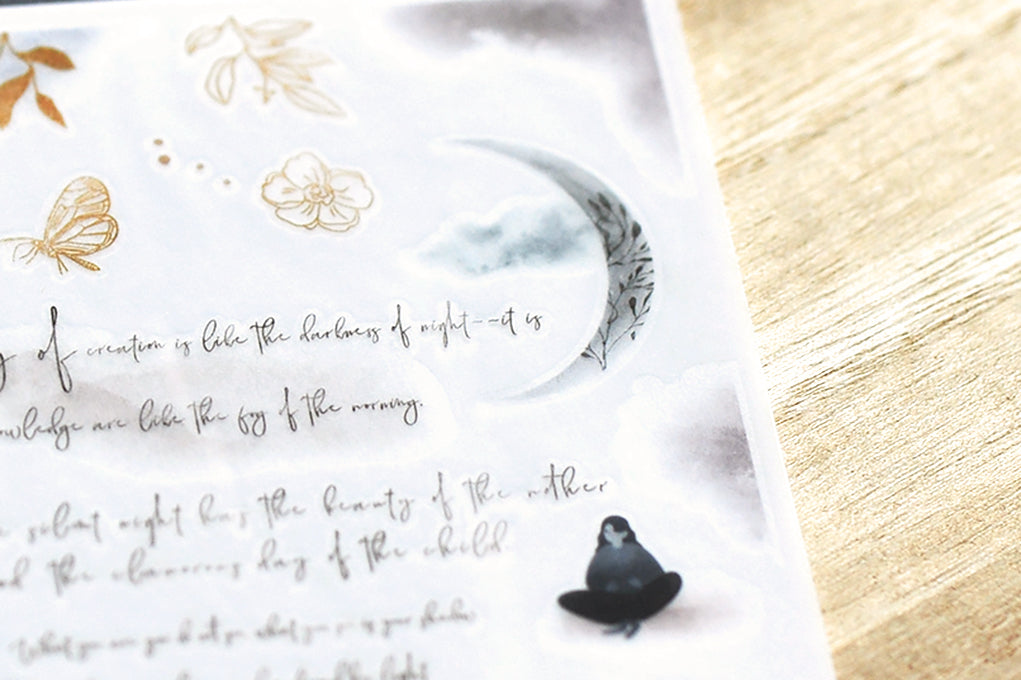 y of creation is like the darkness of night--it is
owledge are like the fog of the morning.
e silent night has the beauty of the mother
nd the clamorous day of the child.
What you are you do not see, what you see is your shadow.